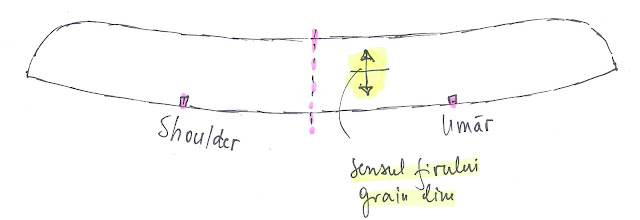 Shoulder
Umăr
sensul firului
grain line